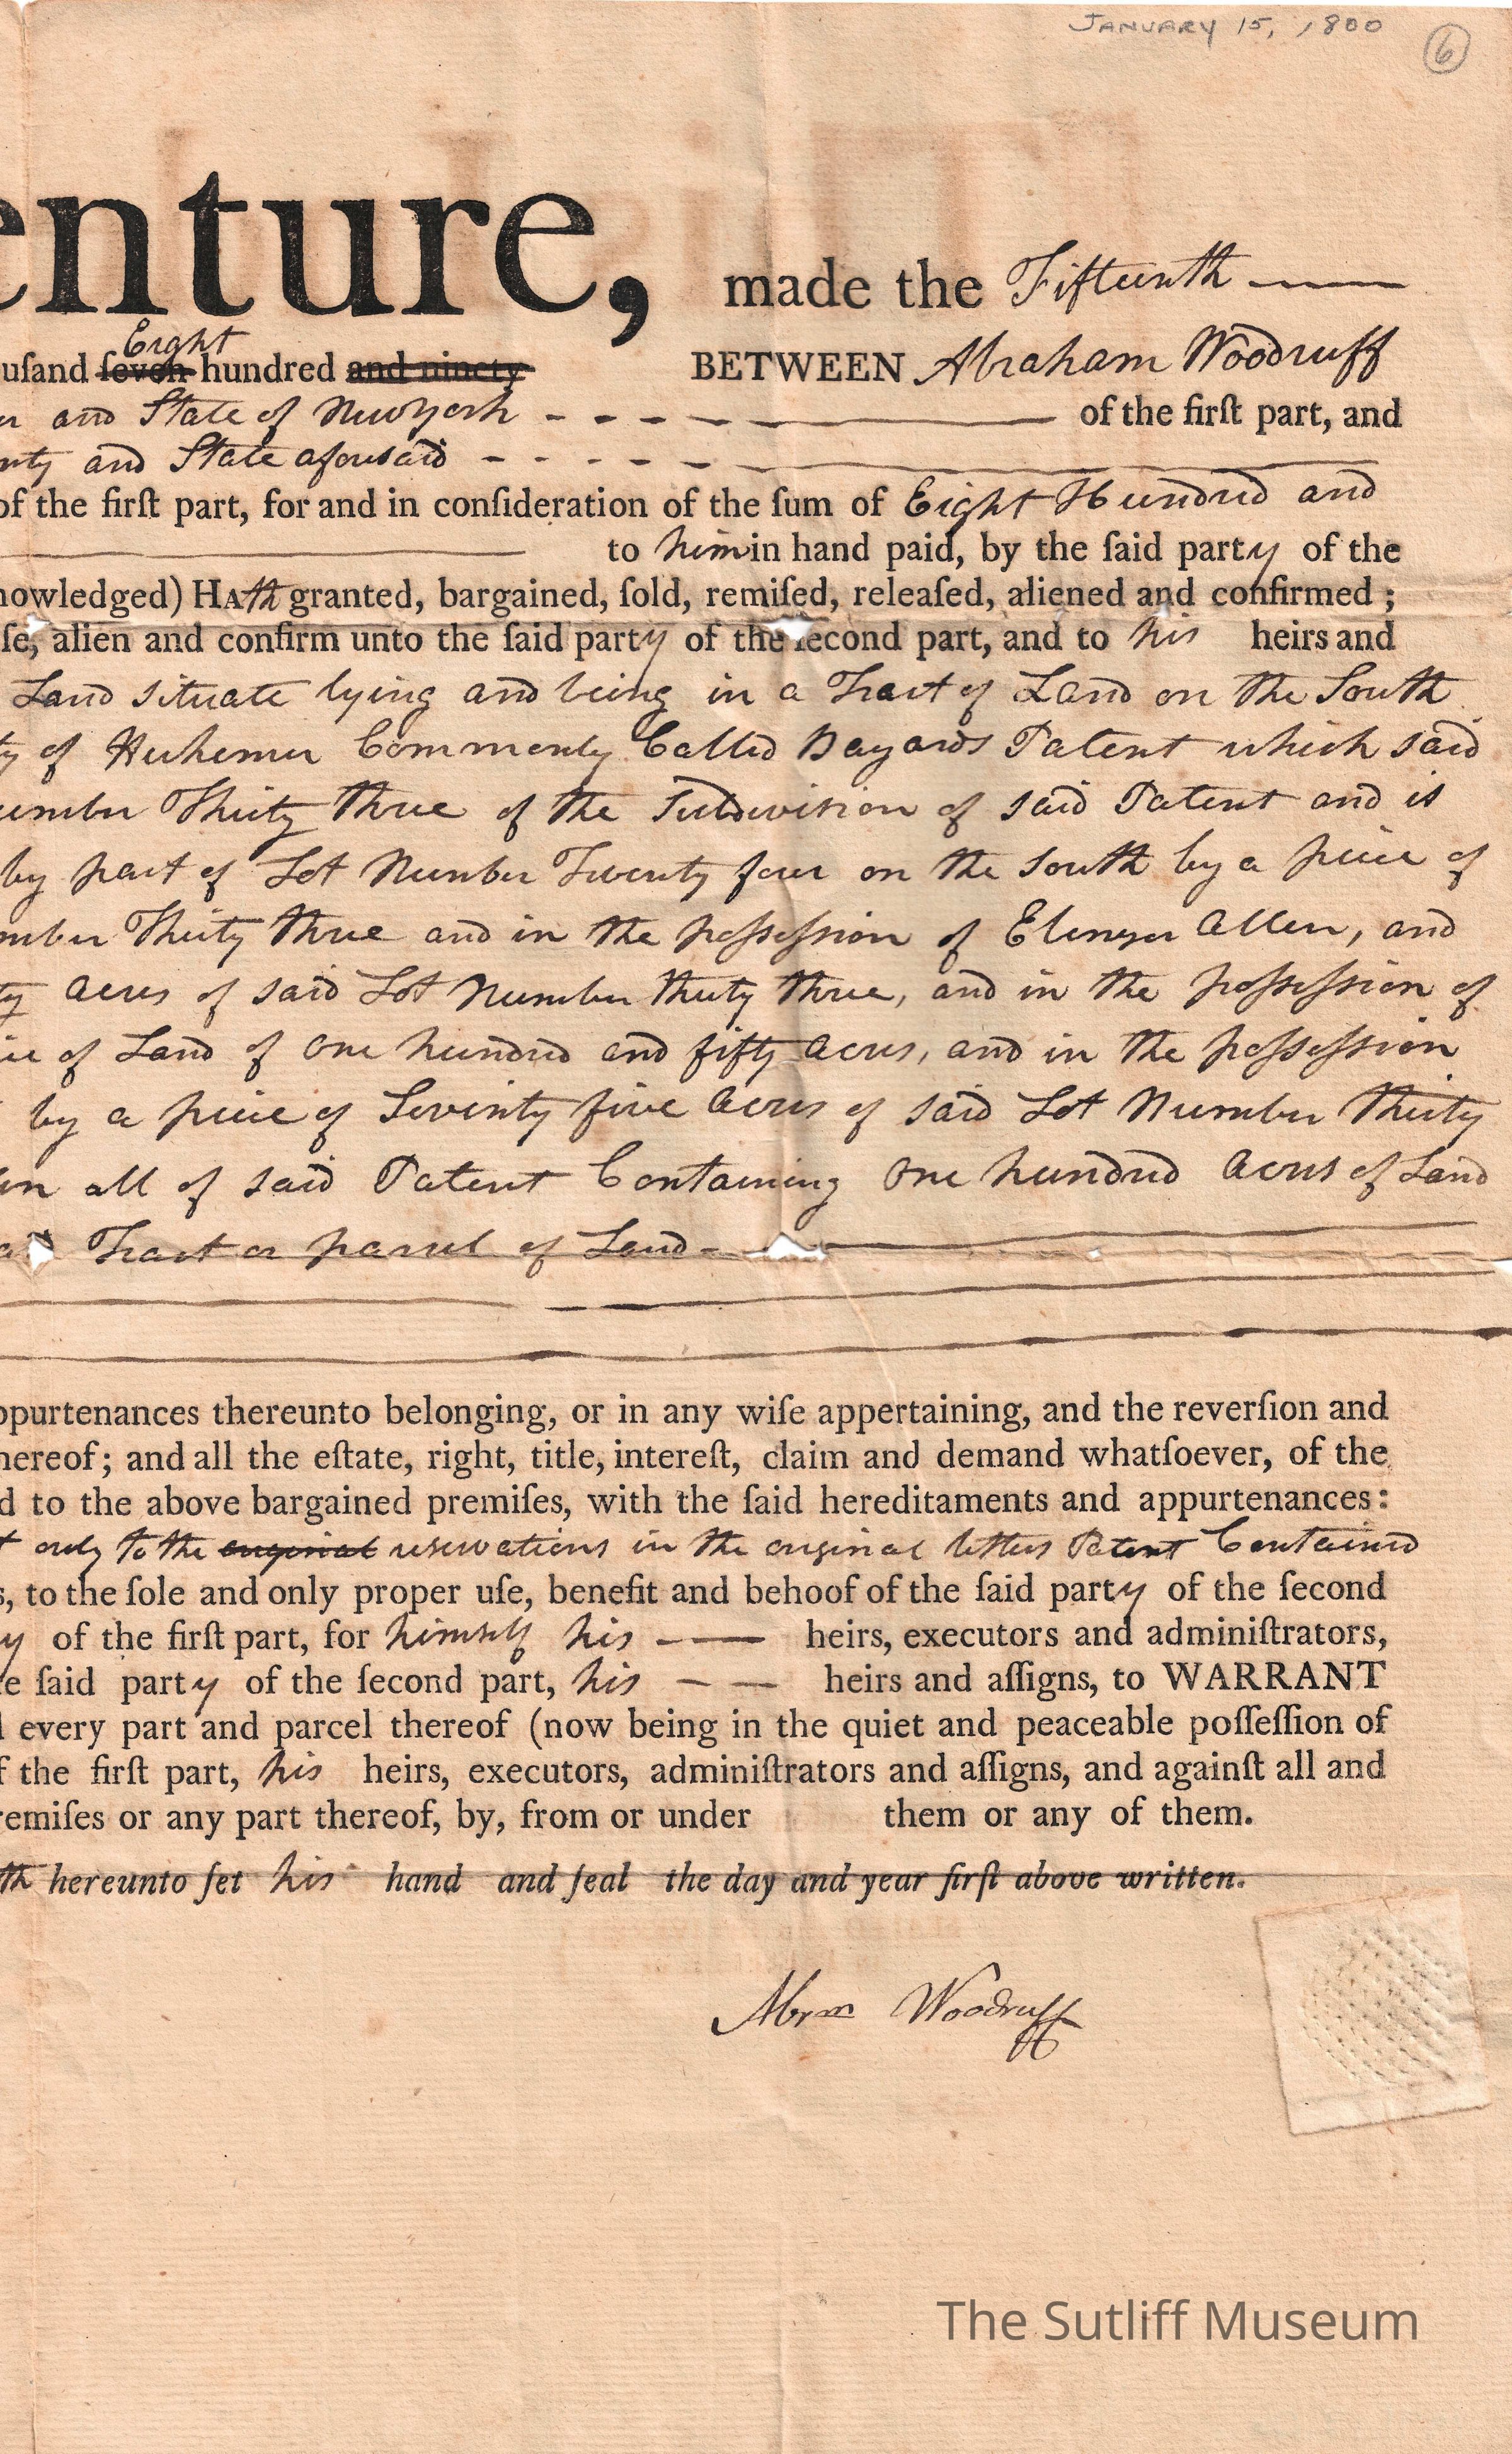 JANUARY 15, 1800 6
enture, made the Fifteenth
Eight
uſand ſeven hundred and ninety BETWEEN Abraham Woodruff
and State of Newyork of the firſt part, and
nty and State aforesaid
of the firſt part, for and in conſideration of the ſum of Eight Hundred and
to him in hand paid, by the ſaid party of the
nowledged) HAth granted, bargained, ſold, remiſed, releaſed, aliened and confirmed ;
ſe, alien and confirm unto the ſaid party of the ſecond part, and to his heirs and
Land situate lying and being in a Tract of Land on the South
ty of Herkemer Commonly Called Bayards Patent which said
umber Thirty three of the Subdivision of said Patent and is
by part of Lot Number Twenty four on the South by a piece of
mber Thirty three and in the possession of Ebenezer Allen, and
ty acres of said Lot Number thirty three, and in the possession of
of Land of one hundred and fifty acres, and in the possession
by a piece of Seventy five acres of said Lot Number Thirty
all of said Patent Containing one hundred acres of Land
Tract or parcel of Land
ppurtenances thereunto belonging, or in any wiſe appertaining, and the reverſion and
hereof; and all the eſtate, right, title, intereſt, claim and demand whatſoever, of the
d to the above bargained premiſes, with the ſaid hereditaments and appurtenances:
t only to the original reservations in the original letters Patent Contained
s, to the ſole and only proper uſe, benefit and behoof of the ſaid party of the ſecond
y of the firſt part, for himself his heirs, executors and adminiſtrators,
e ſaid party of the ſecond part, his heirs and aſſigns, to WARRANT
l every part and parcel thereof (now being in the quiet and peaceable poſſeſſion of
f the firſt part, his heirs, executors, adminiſtrators and aſſigns, and againſt all and
remiſes or any part thereof, by, from or under them or any of them.
th hereunto ſet his hand and ſeal the day and year firſt above written.
Abrm Woodruff
The Sutliff Museum